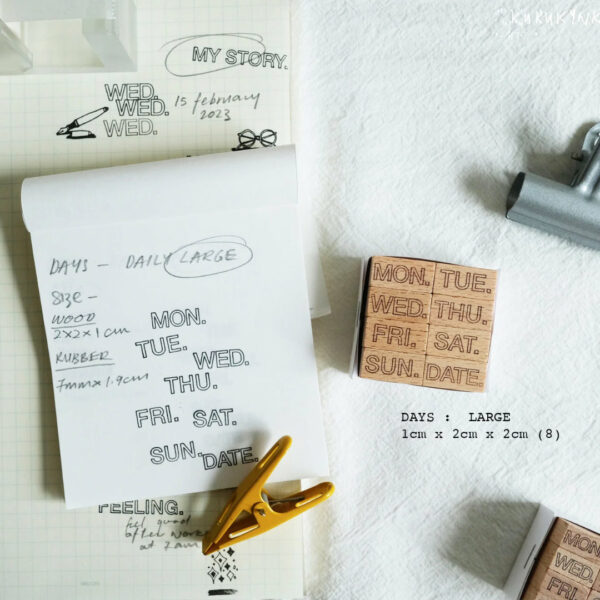 KURUKYNKS
MY STORY.
WED.
WED.
WED.
15 february
2023
DAYS - DAILY LARGE
SIZE -
WOOD
2x2x1cm
RUBBER
7mm x 1.9cm
MON.
TUE.
WED.
THU.
FRI. SAT.
SUN. DATE.
FEELING.
feel good
after work
at 7am
MON. TUE.
WED. THU.
FRI. SAT.
SUN. DATE.
DAYS : LARGE
1cm x 2cm x 2cm (8)
MON.
WED.
FRI.
SUN.